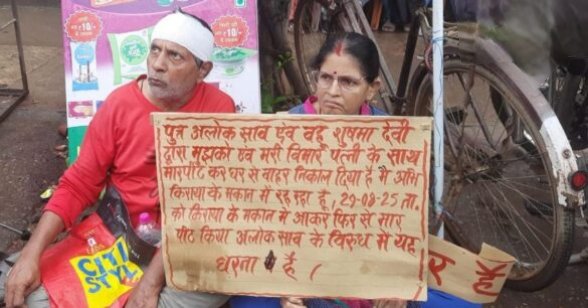 पुत्र अलोक साव एंव बहु शुषमा देवी
द्वारा मुझको एंव मेरी विमार पत्नी के साथ
मारपीट कर घर से बाहर निकाल दिया है मै अभि
किराया के मकान में रह रहा है, 29-08-25 ता.
को किराया के मकान मे आकर फिर से मार
पीट किया अलोक साव के विरुध मे यह
धरना है।
₹10/-
₹10/-
CITI
STYL
र है।